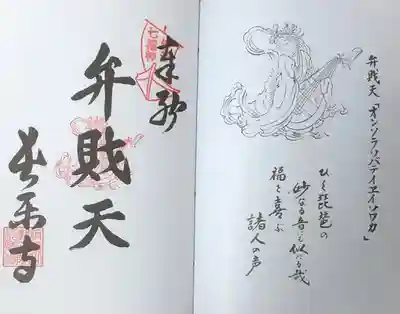 弁財天「オンソラソバテイエイソワカ」
ひく琵琶の
妙なる音に似たる哉
福を喜ぶ
諸人の声
奉拝
七福神
弁財天
長楽寺